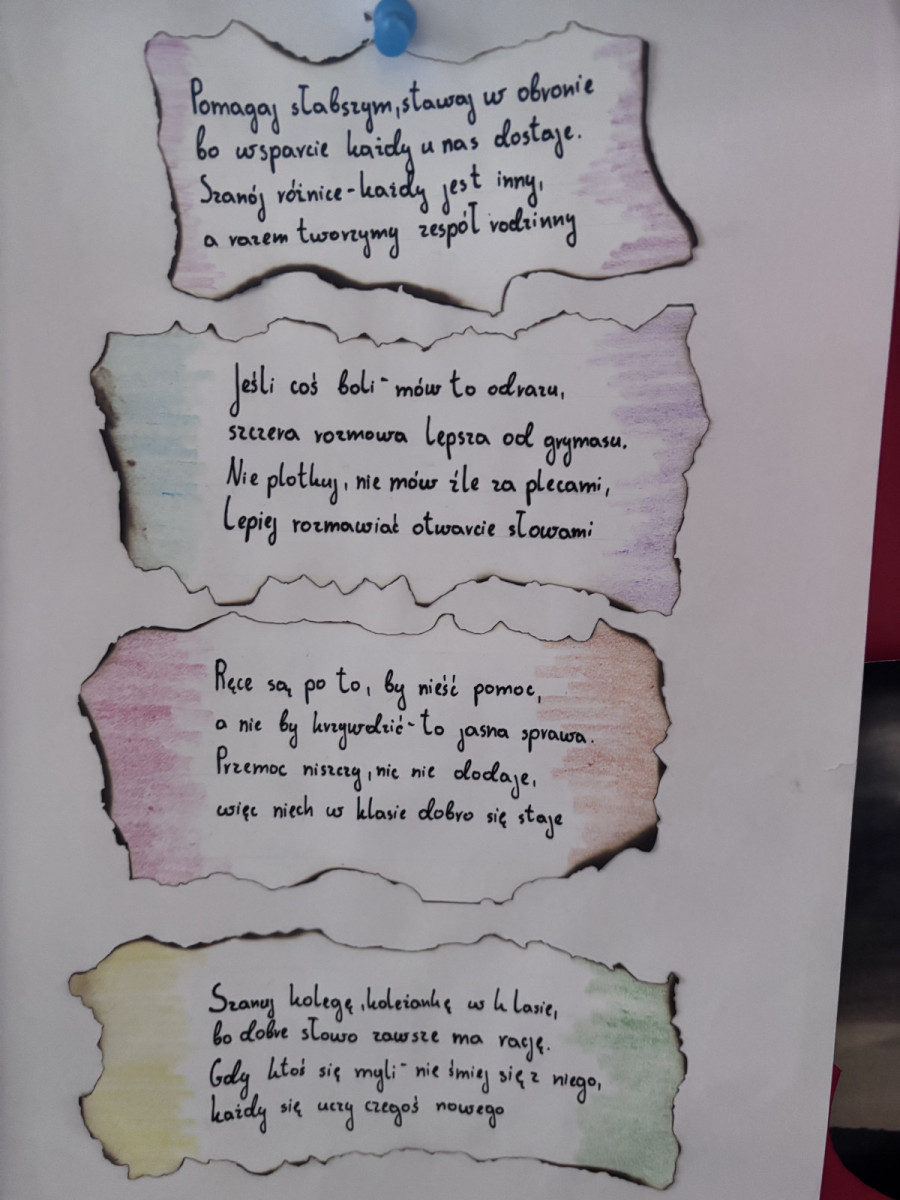 Pomagaj słabszym, stawaj w obronie
bo wsparcie każdy u nas dostaje.
Szanój różnice - każdy jest inny,
a razem tworzymy zespół rodzinny
Jeśli coś boli - mów to odrazu,
szczera rozmowa lepsza od grymasu.
Nie plotkuj, nie mów źle za plecami,
Lepiej rozmawiać otwarcie słowami
Ręce są po to, by nieść pomoc,
a nie by krzywdzić - to jasna sprawa.
Przemoc niszczy, nic nie dodaje,
więc niech w klasie dobro się staje
Szanuj kolegę, koleżankę w klasie,
bo dobre słowo zawsze ma rację.
Gdy ktoś się myli - nie śmiej się z niego,
każdy się uczy czegoś nowego